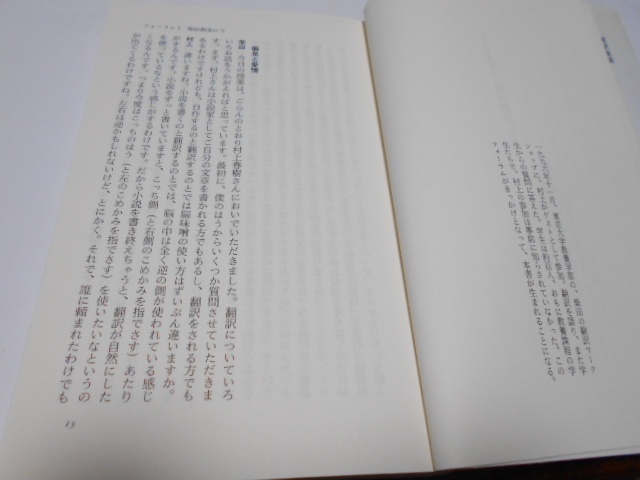 一九九六年十一月、東京大学教養学部の、柴田の翻訳ワーク
ショップに、村上がゲストとして参加、翻訳を語り、また学
生からの質問に答えた。学生は約百人、おもに教養課程の学
生たちで、村上の参加は事前に知らされていなかった。この
フォーラムがきっかけとなって、本書が生まれることになる。
フォーラム1 柴田教室にて
偏見と愛情
柴田 今日の授業は、ごらんのとおり村上春樹さんにおいでいただきました。翻訳についていろ
いろお話をうかがえればと思っています。最初に、僕のほうからいくつか質問させていただきま
す。まず、村上さんは小説家としてご自分の文章を書かれる方でもあるし、翻訳をされる方でも
あるわけですけれども、自作するのと翻訳するのとでは脳味噌の使い方はずいぶん違いますか。
村上 違いますね。小説を書くのと翻訳するのとでは、脳の中は全く逆の側が使われている感じ
がするんです。小説をずっと書いていますと、こっち側（と右側のこめかみを指でさす）あたり
を使っているなという感じがするわけです。だから小説を書き終えちゃうと、翻訳が自然にした
くなるんです。つまり今度はこっちのほう（と左のこめかみを指でさす）を使いたいなというの
が出てくるわけですね。左右は逆かもしれないけど、とにかく。それで、誰に頼まれたわけでも
13